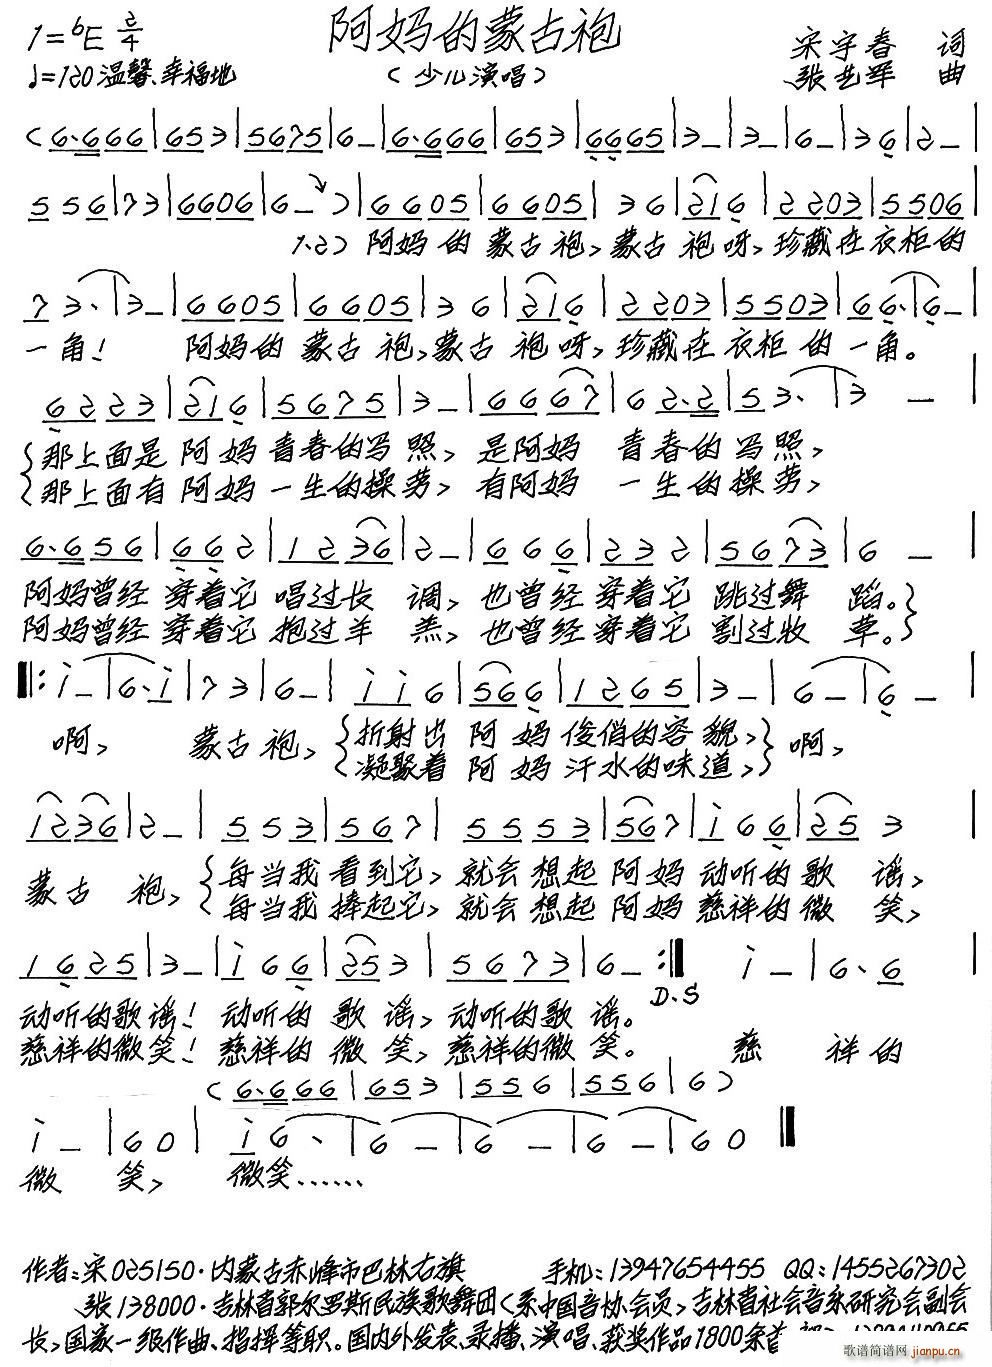 阿妈的蒙古袍
1=♭E 2/4
(少儿演唱)
宋宇春 词
♩=120 温馨、幸福地
张艺军 曲
(6·666|653|5675|6–|6·666|653|6665|3–|3–|6–|36|2–|
556|73|6606|6–)|6605|6605|36|216|2203|5506|
1.2) 阿妈的蒙古袍,蒙古袍呀,珍藏在衣柜的
73·|3–|6605|6605|36|216|2203|5503|66·|6–|
一角! 阿妈的蒙古袍,蒙古袍呀,珍藏在衣柜的一角。
6223|216|5675|3–|6667|62·2|53·|3–|
那上面是阿妈青春的写照,是阿妈青春的写照,
那上面有阿妈一生的操劳,有阿妈一生的操劳,
6·656|662|1236|2–|666|232|5673|6–|
阿妈曾经穿着它唱过长调,也曾经穿着它跳过舞蹈。
阿妈曾经穿着它抱过羊羔,也曾经穿着它割过牧草。
‖:i–|6·i|73|6–|ii6|566|1265|3–|6–|6–|
啊,蒙古袍,折射出阿妈俊俏的容貌,啊,
凝聚着阿妈汗水的味道,
1236|2–|553|567|5553|567|i66|253|
蒙古袍,每当我看到它,就会想起阿妈动听的歌谣,
每当我捧起它,就会想起阿妈慈祥的微笑,
1625|3–|i66|253|5673|6–:‖ i–|6·6|
D.S
动听的歌谣!动听的歌谣,动听的歌谣。
慈祥的微笑!慈祥的微笑,慈祥的微笑。 慈祥的
(6·666|653|556|556|6)
i–|60|i6·|6–|6–|6–|60‖
微笑, 微笑……
作者:宋 025150·内蒙古赤峰市巴林右旗 手机:13947654455 QQ:1455267302
张 138000·吉林省郭尔罗斯民族歌舞团<系中国音协会员>吉林省社会音乐研究会副会
长,国家一级作曲、指挥等职。国内外发表、录播、演唱、获奖作品1800余首
歌谱简谱网 jianpu.cn